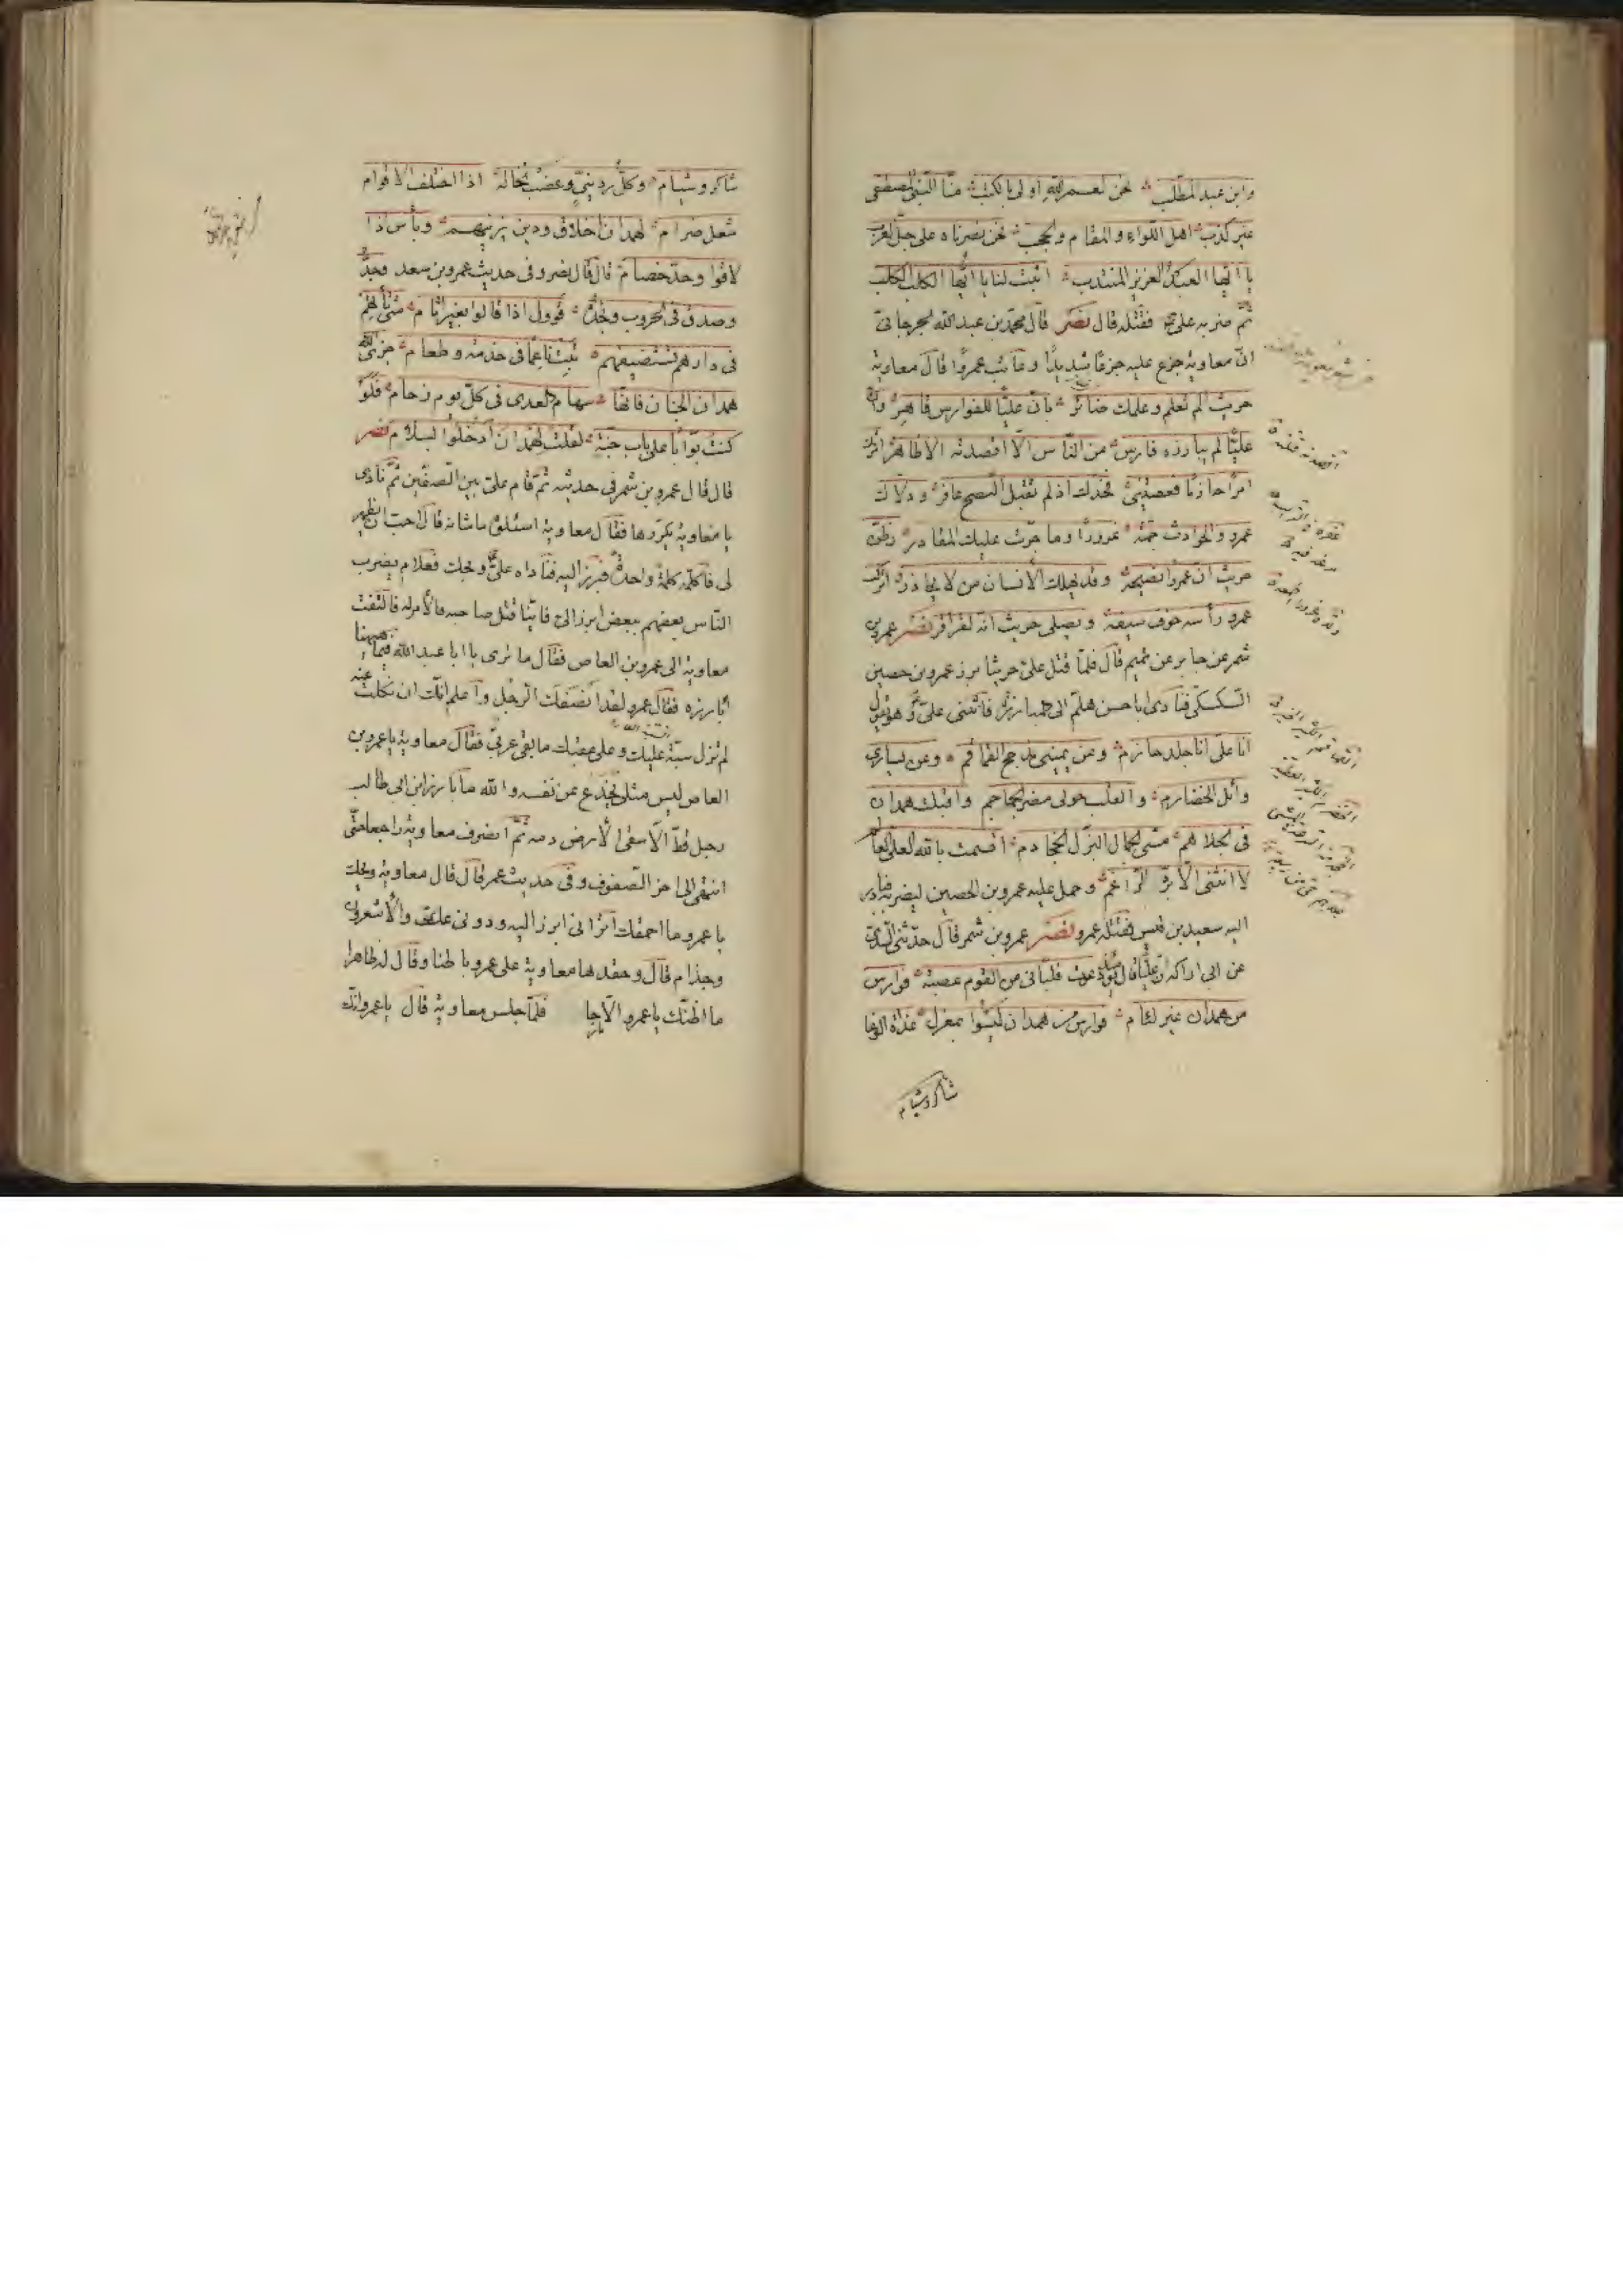 وابن عبد المطلب نحن لعمر الله اولى بالكتب منا النبي المصطفى
غير كذب اهل اللواء والمقام والحجب نحن نصرناه على جل العرب
يا ايها العبد الغرير المنتدب اثبت لنا يا ايها الكلب الكلب
ثم ضربه علي فقتله قال نصر قال محمد بن عبد الله الجرجاني
ان معاوية جزع عليه جزعا شديدا وعاتب عمروا قال معاوية
حريث الم تعلم وعلمك ضائر بان عليا للفوارس قاهر وان
عليا لم يبارزه فارس من الناس الا اقصدته الاظافر امرتك
امرا حازما فعصيتني فجدك اذ لم تقبل النصح عاثر ودلاك
عمرو والحوادث جمة غرورا وما جرت عليك المقادر وظن
حريث ان عمروا نصيحه وقد يهلك الانسان من لا يحاذر ايركب
عمرو رأسه خوف سيفه ويصلي حريث انه لفرافر نصر عمرو بن
شمر عن جابر عن تميم قال فلما قتل علي حريثا برز عمرو بن حصين
السكسكي فنادى ابا حسن هلم الى المبارزة فانثنى علي وهو يقول
انا علي انا جلد حازم وعن يميني مذحج القماقم وعن يساري
وائل الخضارم والقلب حولي مضر الجماجم واقبلت همدان
في اجلادهم مشي الجمال البزل الخجادم اقسمت بالله العلي العالم
لا انثني الا برد الراغم وحمل عليه عمرو بن الحصين ليضربه فبادر
اليه سعيد بن قيس فقتله عمرو نصر عمرو بن شمر قال حدثني السدي
عن ابي اراكه ان عليا قال يومئذ دعوت فلباني من القوم عصبة فوارس
من همدان غير لئام فوارس من همدان ليسوا بعزل غداة الوغا
شاكر وشبام
شاكر وشبام وكل رديني وعضب تخاله اذا اختلف الاقوام
شعل ضرام لهمدان اخلاق ودين يزينهم وبأس اذا
لاقوا وحد خصام قال قال نصر وفي حديث عمرو بن سعد وجد
وصدق في الحروب ونجدة وقول اذا قالوا بغير اثام متى تأتهم
في دارهم تستضيفهم تبت ناعما في خدمة وطعام جزى الله
همدان الجنان فانها سهام العدى في كل يوم زحام فلو
كنت بوابا على باب جنة لقلت لهمدان ادخلوا بسلام نصر
قال قال عمرو بن شمر في حديثه ثم قام علي بين الصفين ثم نادى
يا معاوية يكررها فقال معاوية اسئلوه ما شانه قال احب ان يظهر
لي فاكلمه كلمة واحدة فبرز اليه فناداه علي ويحك فعلام يضرب
الناس بعضهم ببعض ابرز الي فاينا قتل صاحبه فالأمر له فالتفت
معاوية الى عمرو بن العاص فقال ما ترى يا ابا عبد الله فيما هيهنا
أبارزه فقال عمرو لقد انصفك الرجل واعلم انك ان نكلت عنه
لم تزل سبة عليك وعلى عقبك ما بقي عربي فقال معاوية يا عمرو بن
العاص ليس مثلي يخدع عن نفسه والله ما بارز ابن ابي طالب
رجل قط الا سقى الأرض دمه ثم انصرف معاوية راجعا حتى
انتهى الى اخر الصفوف وفي حديث عمر قال قال معاوية ويحك
يا عمرو ما احمقك اتراني ابرز اليه ودوني عك والأشعرون
وجذام قال وحقدها معاوية على عمرو باطنا وقال له ظاهرا
ما اظنك يا عمرو الا جادا فلما جلس معاوية قال يا عمرو انك